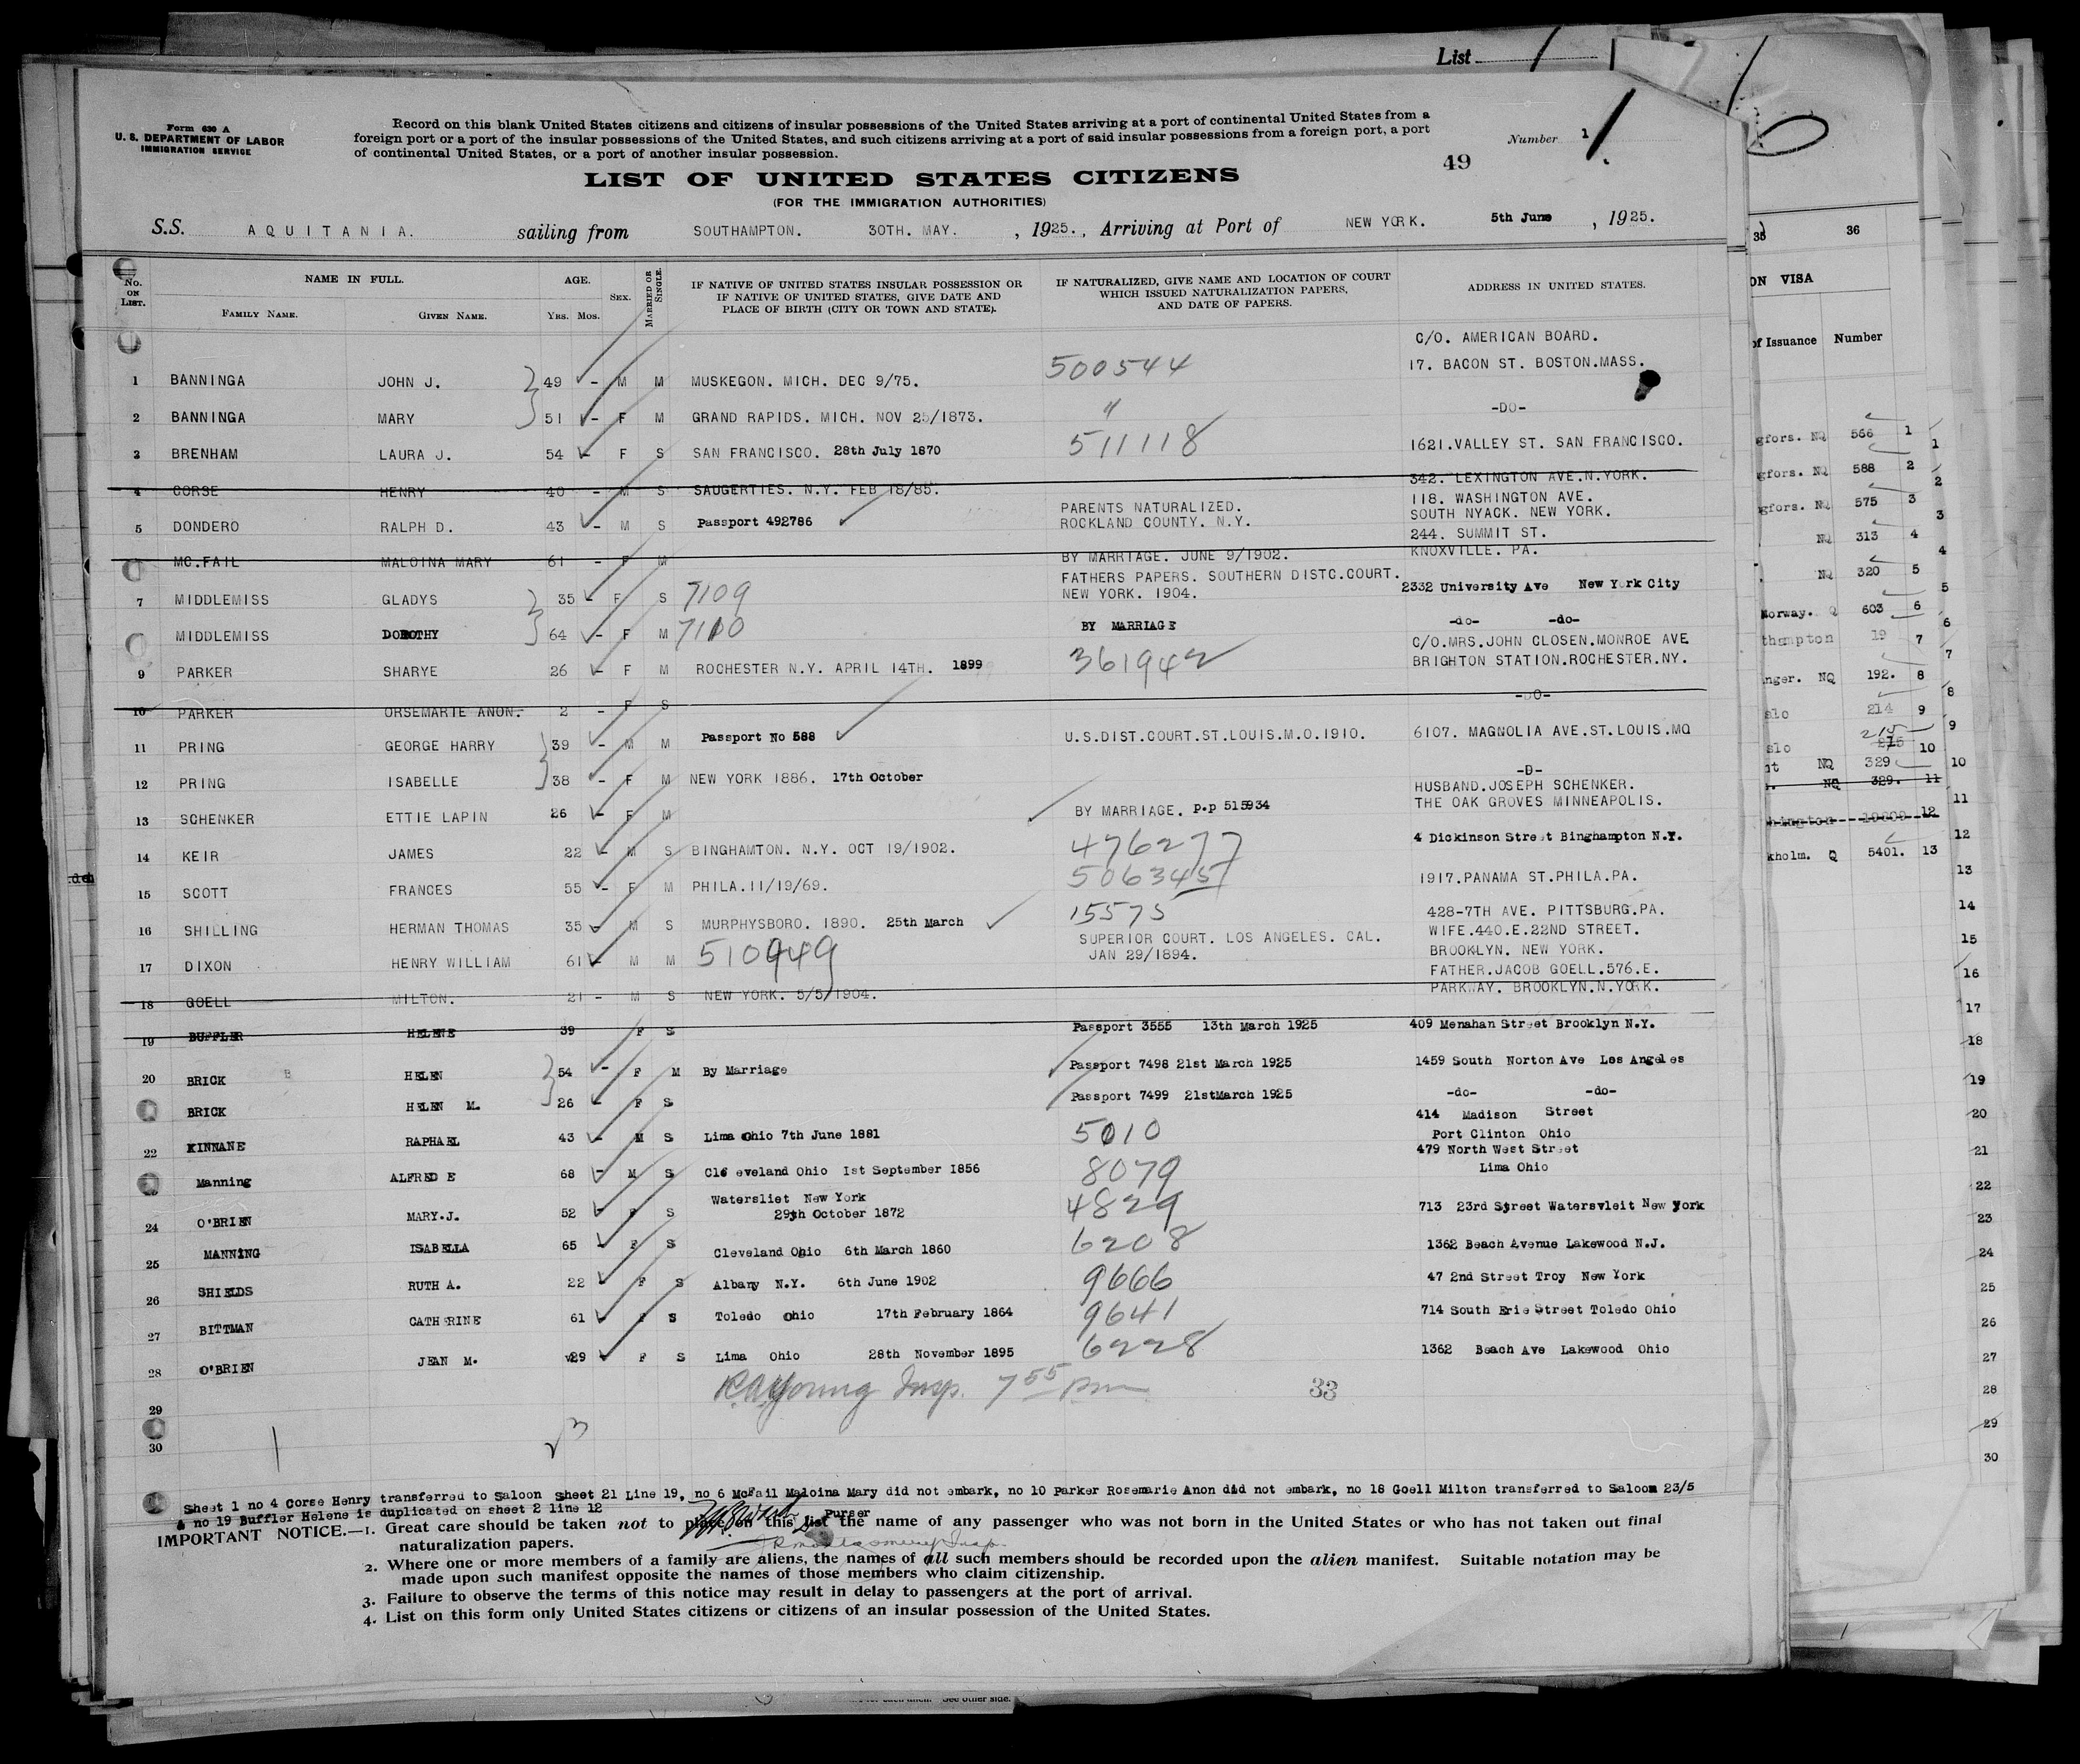 List 1
Form 630 A
U. S. DEPARTMENT OF LABOR
IMMIGRATION SERVICE
Record on this blank United States citizens and citizens of insular possessions of the United States arriving at a port of continental United States from a
foreign port or a port of the insular possessions of the United States, and such citizens arriving at a port of said insular possessions from a foreign port, a port
of continental United States, or a port of another insular possession.
Number 1
49
LIST OF UNITED STATES CITIZENS
(FOR THE IMMIGRATION AUTHORITIES)
S.S. AQUITANIA. sailing from SOUTHAMPTON. 30TH. MAY. , 1925., Arriving at Port of NEW YORK. 5th June , 1925.
No. ON LIST. NAME IN FULL. FAMILY NAME. GIVEN NAME. AGE. YRS. MOS. SEX. MARRIED OR SINGLE. IF NATIVE OF UNITED STATES INSULAR POSSESSION OR IF NATIVE OF UNITED STATES, GIVE DATE AND PLACE OF BIRTH (CITY OR TOWN AND STATE). IF NATURALIZED, GIVE NAME AND LOCATION OF COURT WHICH ISSUED NATURALIZATION PAPERS, AND DATE OF PAPERS. ADDRESS IN UNITED STATES.
C/O. AMERICAN BOARD.
1 BANNINGA JOHN J. 49 - M M MUSKEGON. MICH. DEC 9/75. 500544 17. BACON ST. BOSTON.MASS.
2 BANNINGA MARY 51 - F M GRAND RAPIDS. MICH. NOV 25/1873. " -DO-
3 BRENHAM LAURA J. 54 - F S SAN FRANCISCO. 28th July 1870 511118 1621.VALLEY ST. SAN FRANCISCO.
4 CORSE HENRY 40 - M S SAUGERTIES. N.Y. FEB 18/85. 342. LEXINGTON AVE.N.YORK.
5 DONDERO RALPH D. 43 - M S Passport 492786 PARENTS NATURALIZED. ROCKLAND COUNTY. N.Y. 118. WASHINGTON AVE. SOUTH NYACK. NEW YORK.
MC.FAIL MALOINA MARY 61 - F M BY MARRIAGE. JUNE 9/1902. 244. SUMMIT ST. KNOXVILLE. PA.
7 MIDDLEMISS GLADYS 35 - F S 7109 FATHERS PAPERS. SOUTHERN DISTC.COURT. NEW YORK. 1904. 2332 University Ave New York City
MIDDLEMISS DOROTHY 64 - F M 7110 BY MARRIAGE -do- -do-
9 PARKER SHARYE 26 - F M ROCHESTER N.Y. APRIL 14TH. 1899 361942 C/O.MRS.JOHN CLOSEN.MONROE AVE BRIGHTON STATION.ROCHESTER.NY.
10 PARKER ORSEMARIE ANON. 2 - F S -DO-
11 PRING GEORGE HARRY 39 - M M Passport No 588 U.S.DIST.COURT.ST.LOUIS.M.O.1910. 6107. MAGNOLIA AVE.ST.LOUIS.MO
12 PRING ISABELLE 38 - F M NEW YORK 1886. 17th October -D-
13 SCHENKER ETTIE LAPIN 26 - F M BY MARRIAGE. p.p 515934 HUSBAND.JOSEPH SCHENKER. THE OAK GROVES MINNEAPOLIS.
14 KEIR JAMES 22 - M S BINGHAMTON. N.Y. OCT 19/1902. 476277 4 Dickinson Street Binghampton N.Y.
15 SCOTT FRANCES 55 - F M PHILA.11/19/69. 1917.PANAMA ST.PHILA.PA.
16 SHILLING HERMAN THOMAS 35 - M S MURPHYSBORO. 1890. 25th March 15575 428-7TH AVE. PITTSBURG.PA.
17 DIXON HENRY WILLIAM 61 - M M 510949 SUPERIOR COURT. LOS ANGELES. CAL. JAN 29/1894. WIFE.440.E.22ND STREET. BROOKLYN. NEW YORK.
18 GOELL MILTON. 21 - M S NEW YORK. 5/5/1904. FATHER.JACOB GOELL.576.E. PARKWAY. BROOKLYN.N.YORK.
19 BUFFLER HELENE 39 F S Passport 3555 13th March 1925 409 Menahan Street Brooklyn N.Y.
20 BRICK B HELEN 54 - F M By Marriage Passport 7498 21st March 1925 1459 South Norton Ave Los Angeles
BRICK HELEN M. 26 - F S Passport 7499 21stMarch 1925 -do- -do-
22 KINNANE RAPHAEL 43 - M S Lima Ohio 7th June 1881 5010 414 Madison Street Port Clinton Ohio
Manning ALFRED E 68 - M S Cle eveland Ohio 1st September 1856 8079 479 North West Street Lima Ohio
24 O'BRIEN MARY.J. 52 - F S Watersliet New York 29th October 1872 4829 713 23rd Street Watersvleit New York
25 MANNING ISABELLA 65 - F S Cleveland Ohio 6th March 1860 6208 1362 Beach Avenue Lakewood N.J.
26 SHIELDS RUTH A. 22 - F S Albany N.Y. 6th June 1902 9666 47 2nd Street Troy New York
27 BITTMAN CATHERINE 61 - F S Toledo Ohio 17th February 1864 9641 714 South Erie Street Toledo Ohio
28 O'BRIEN JEAN M. 29 - F S Lima Ohio 28th November 1895 6228 1362 Beach Ave Lakewood Ohio
29 Young Insp. 7 55 pm 33
30
Sheet 1 no 4 Corse Henry transferred to Saloon Sheet 21 Line 19, no 6 McFail Maloina Mary did not embark, no 10 Parker Rosemarie Anon did not embark, no 18 Goell Milton transferred to Saloon 23/5
& no 19 Buffler Helene is duplicated on sheet 2 line 12
Purser
IMPORTANT NOTICE.—1. Great care should be taken not to place on this list the name of any passenger who was not born in the United States or who has not taken out final
naturalization papers.
2. Where one or more members of a family are aliens, the names of all such members should be recorded upon the alien manifest. Suitable notation may be
made upon such manifest opposite the names of those members who claim citizenship.
3. Failure to observe the terms of this notice may result in delay to passengers at the port of arrival.
4. List on this form only United States citizens or citizens of an insular possession of the United States.
35 36
ON VISA
of Issuance Number
gfors. NQ 566 1
gfors. NQ 588 2
gfors. NQ 575 3
NQ 313 4
NQ 320 5
Norway. Q 603 6
thampton 19 7
nger. NQ 192. 8
slo 214 9
slo 215 10
NQ 329
NQ 329. 11
hington 12
kholm. Q 5401. 13
1
2
3
4
5
6
7
8
9
10
11
12
13
14
15
16
17
18
19
20
21
22
23
24
25
26
27
28
29
30
See other side.